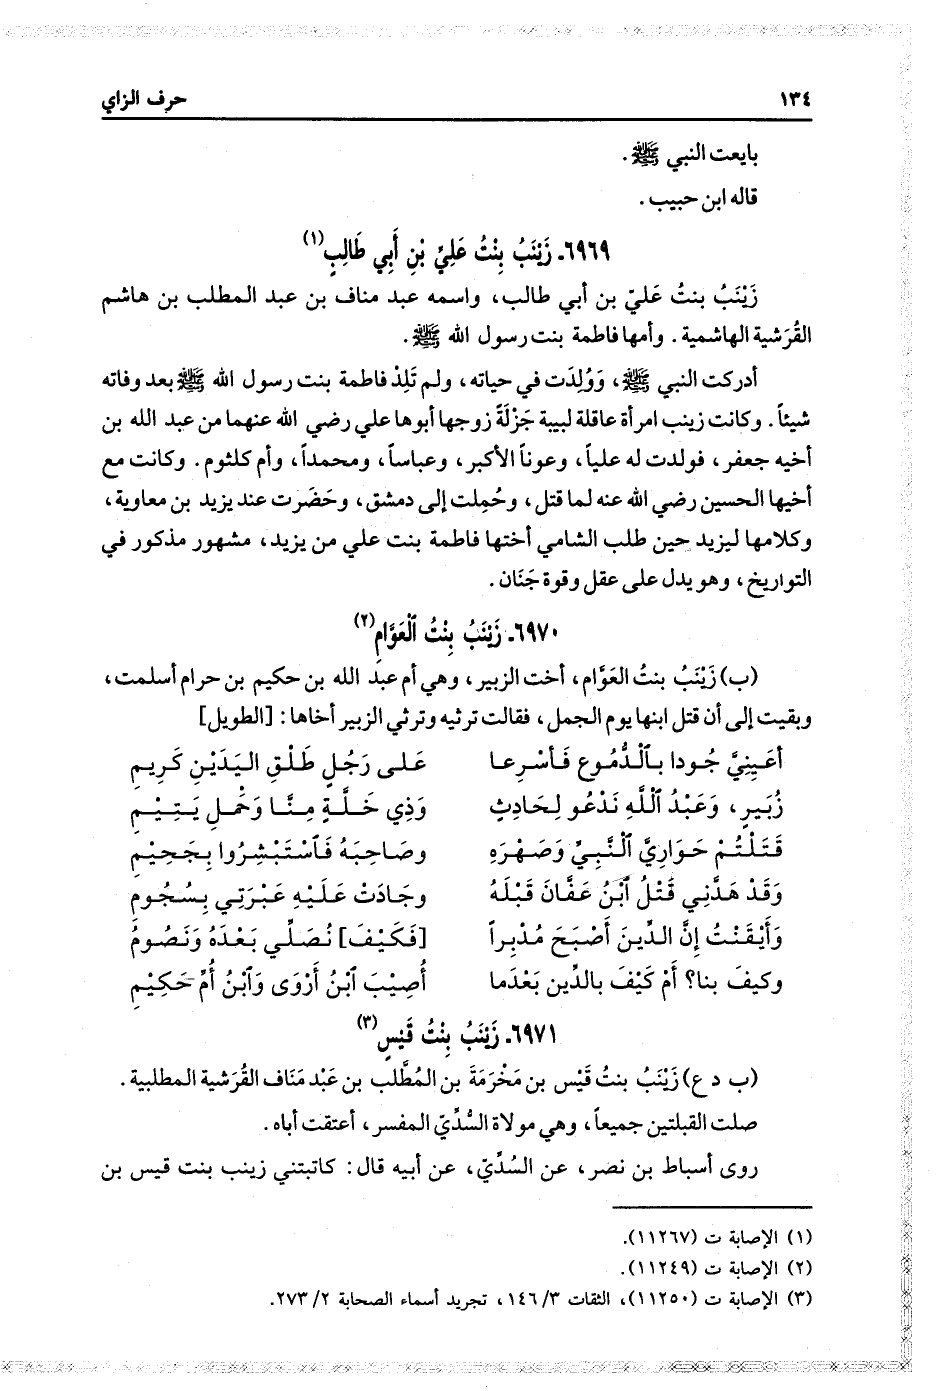 ١٣٤ حرف الزاي
بايعت النبي ﷺ.
قاله ابن حبيب.
٦٩٦٩ـ زَيْنَبُ بِنْتُ عَلِيِّ بْنِ أَبِي طَالِبٍ(١)
زَيْنَبُ بنتُ عَليّ بن أبي طالب، واسمه عبد مناف بن عبد المطلب بن هاشم
القُرَشية الهاشمية. وأمها فاطمة بنت رسول الله ﷺ.
أدركت النبي ﷺ، وَوُلِدَت في حياته، ولم تَلِدْ فاطمة بنت رسول الله ﷺ بعد وفاته
شيئاً. وكانت زينب امرأة عاقلة لبيبة جَزْلَةً زوجها أبوها علي رضي الله عنهما من عبد الله بن
أخيه جعفر، فولدت له علياً، وعوناً الأكبر، وعباساً، ومحمداً، وأم كلثوم. وكانت مع
أخيها الحسين رضي الله عنه لما قتل، وحُمِلت إلى دمشق، وحَضَرت عند يزيد بن معاوية،
وكلامها ليزيد حين طلب الشامي أختها فاطمة بنت علي من يزيد، مشهور مذكور في
التواريخ، وهو يدل على عقل وقوة جَنَان.
٦٩٧٠ـ زَيْنَبُ بِنْتُ ٱلْعَوَّامِ(٢)
(ب) زَيْنَبُ بنتُ العَوَّام، أخت الزبير، وهي أم عبد الله بن حكيم بن حرام أسلمت،
وبقيت إلى أن قتل ابنها يوم الجمل، فقالت ترثيه وترثي الزبير أخاها: [الطويل]
أعَيِنِيَّ جُودا بٱلْدُّمُوعِ فَأسْرِعا عَلى رَجُلٍ طَلْقِ اليَدَيْنِ كَرِيمِ
زُبَيرٍ، وَعَبْدُ ٱللَّهِ نَدْعُو لِحَادِثٍ وَذِي خَلَّةٍ مِنَّا وَحَمْلِ يَتِيْمِ
قَتَلْتُمْ حَوَارِيَّ ٱلنَّبِيِّ وَصَهْرَهِ وصَاحِبَهُ فَٱسْتَبْشِرُوا بِجَحِيْمِ
وَقَدْ هَدَّنِي قَتْلُ ٱبْنُ عَفَّانَ قَبْلَهُ وجَادَتْ عَلَيْهِ عَبْرَتِي بِسُجُومِ
وَأَيْقَنْتُ إِنَّ الدِّينَ أَصْبَحَ مُدْبِراً [فَكَيْفَ] نُصَلِّي بَعْدَهُ وَنَصُومُ
وكيفَ بنا؟ أمْ كَيْفَ بالدِّين بَعْدَما أُصِيْبَ ٱبْنُ أَرْوَى وَٱبْنُ أُمِّ حَكِيْمِ
٦٩٧١ـ زَيْنَبُ بِنْتُ قَيْسٍ(٣)
(ب د ع) زَيْنَبُ بنتُ قَيْس بن مَخْرَمَةَ بن المُطَّلب بن عَبْد مَنَاف القُرَشية المطلبية.
صلت القبلتين جميعاً، وهي مولاة السُّدِّيّ المفسر، أعتقت أباه.
روى أسباط بن نصر، عن السُدِّيّ، عن أبيه قال: كاتبتني زينب بنت قيس بن
(١) الإصابة ت (١١٢٦٧).
(٢) الإصابة ت (١١٢٤٩).
(٣) الإصابة ت (١١٢٥٠)، الثقات ٣/ ١٤٦، تجريد أسماء الصحابة ٢/ ٢٧٣.